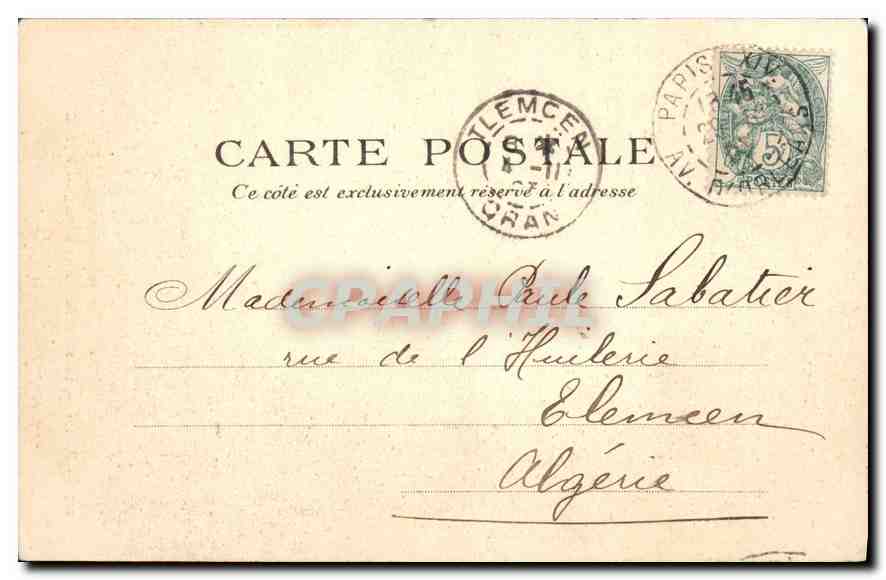 PARIS XIV
AV. D'ORLÉANS
5
TLEMCEN
ORAN
CARTE POSTALE
Ce côté est exclusivement réservé à l'adresse
CPAPHIL
Mademoiselle Paule Sabatier
rue de l'Huilerie
Tlemcen
Algérie